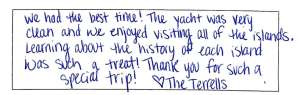 we had the best time! The yacht was very
clean and we enjoyed visiting all of the islands.
Learning about the history of each island
was such a treat! Thank you for such a
special trip! ♡The Terrells